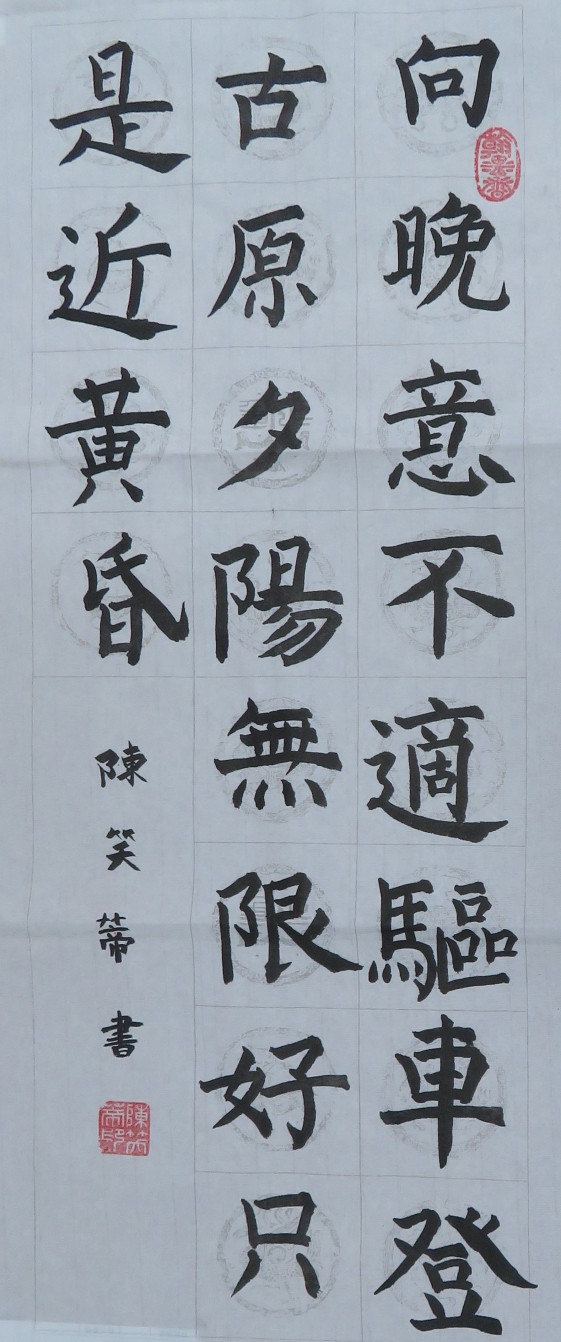 向晚意不適驅車登
古原夕陽無限好只
是近黃昏
陳笑蒂書